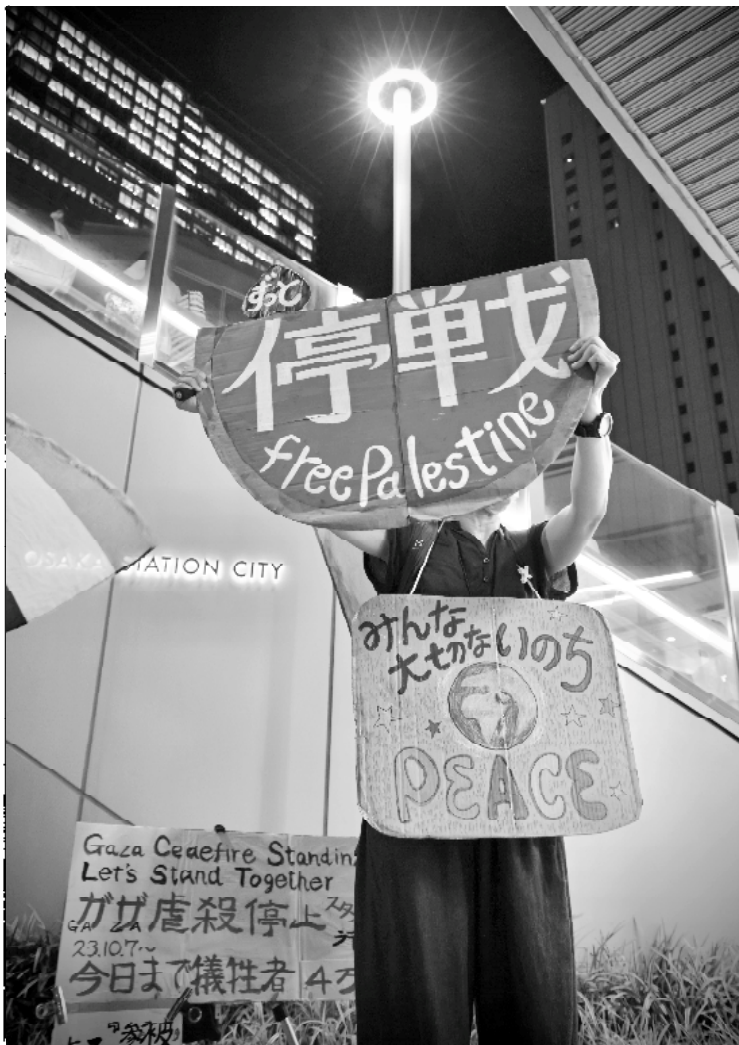 ずっと
停戦
free Palestine
OSAKA STATION CITY
みんな
大切ないのち
PEACE
Gaza Ceaefire Standin
Let's Stand Together
ガザ虐殺停止
GA ZA
23.10.7~
今日まで犠牲者 4万